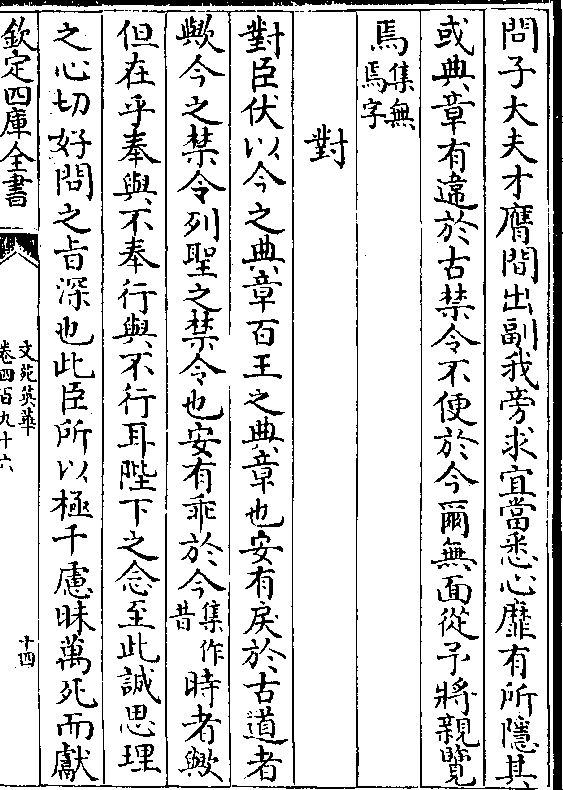 問子大夫才膺間出副我旁求宜當悉心靡有所隱其
或典章有違於古禁令不便於今爾無面從予將親覽
焉集無焉字
對
對臣伏以今之典章百王之典章也安有戾於古道者
歟今之禁令列聖之禁令也安有乖於今集作昔時者歟
但在乎奉與不奉行與不行耳陛下之念至此誠思理
之心切好問之旨深也此臣所以極千慮昧萬死而獻
欽定四庫全書
文苑英華
卷四百九十六
十四